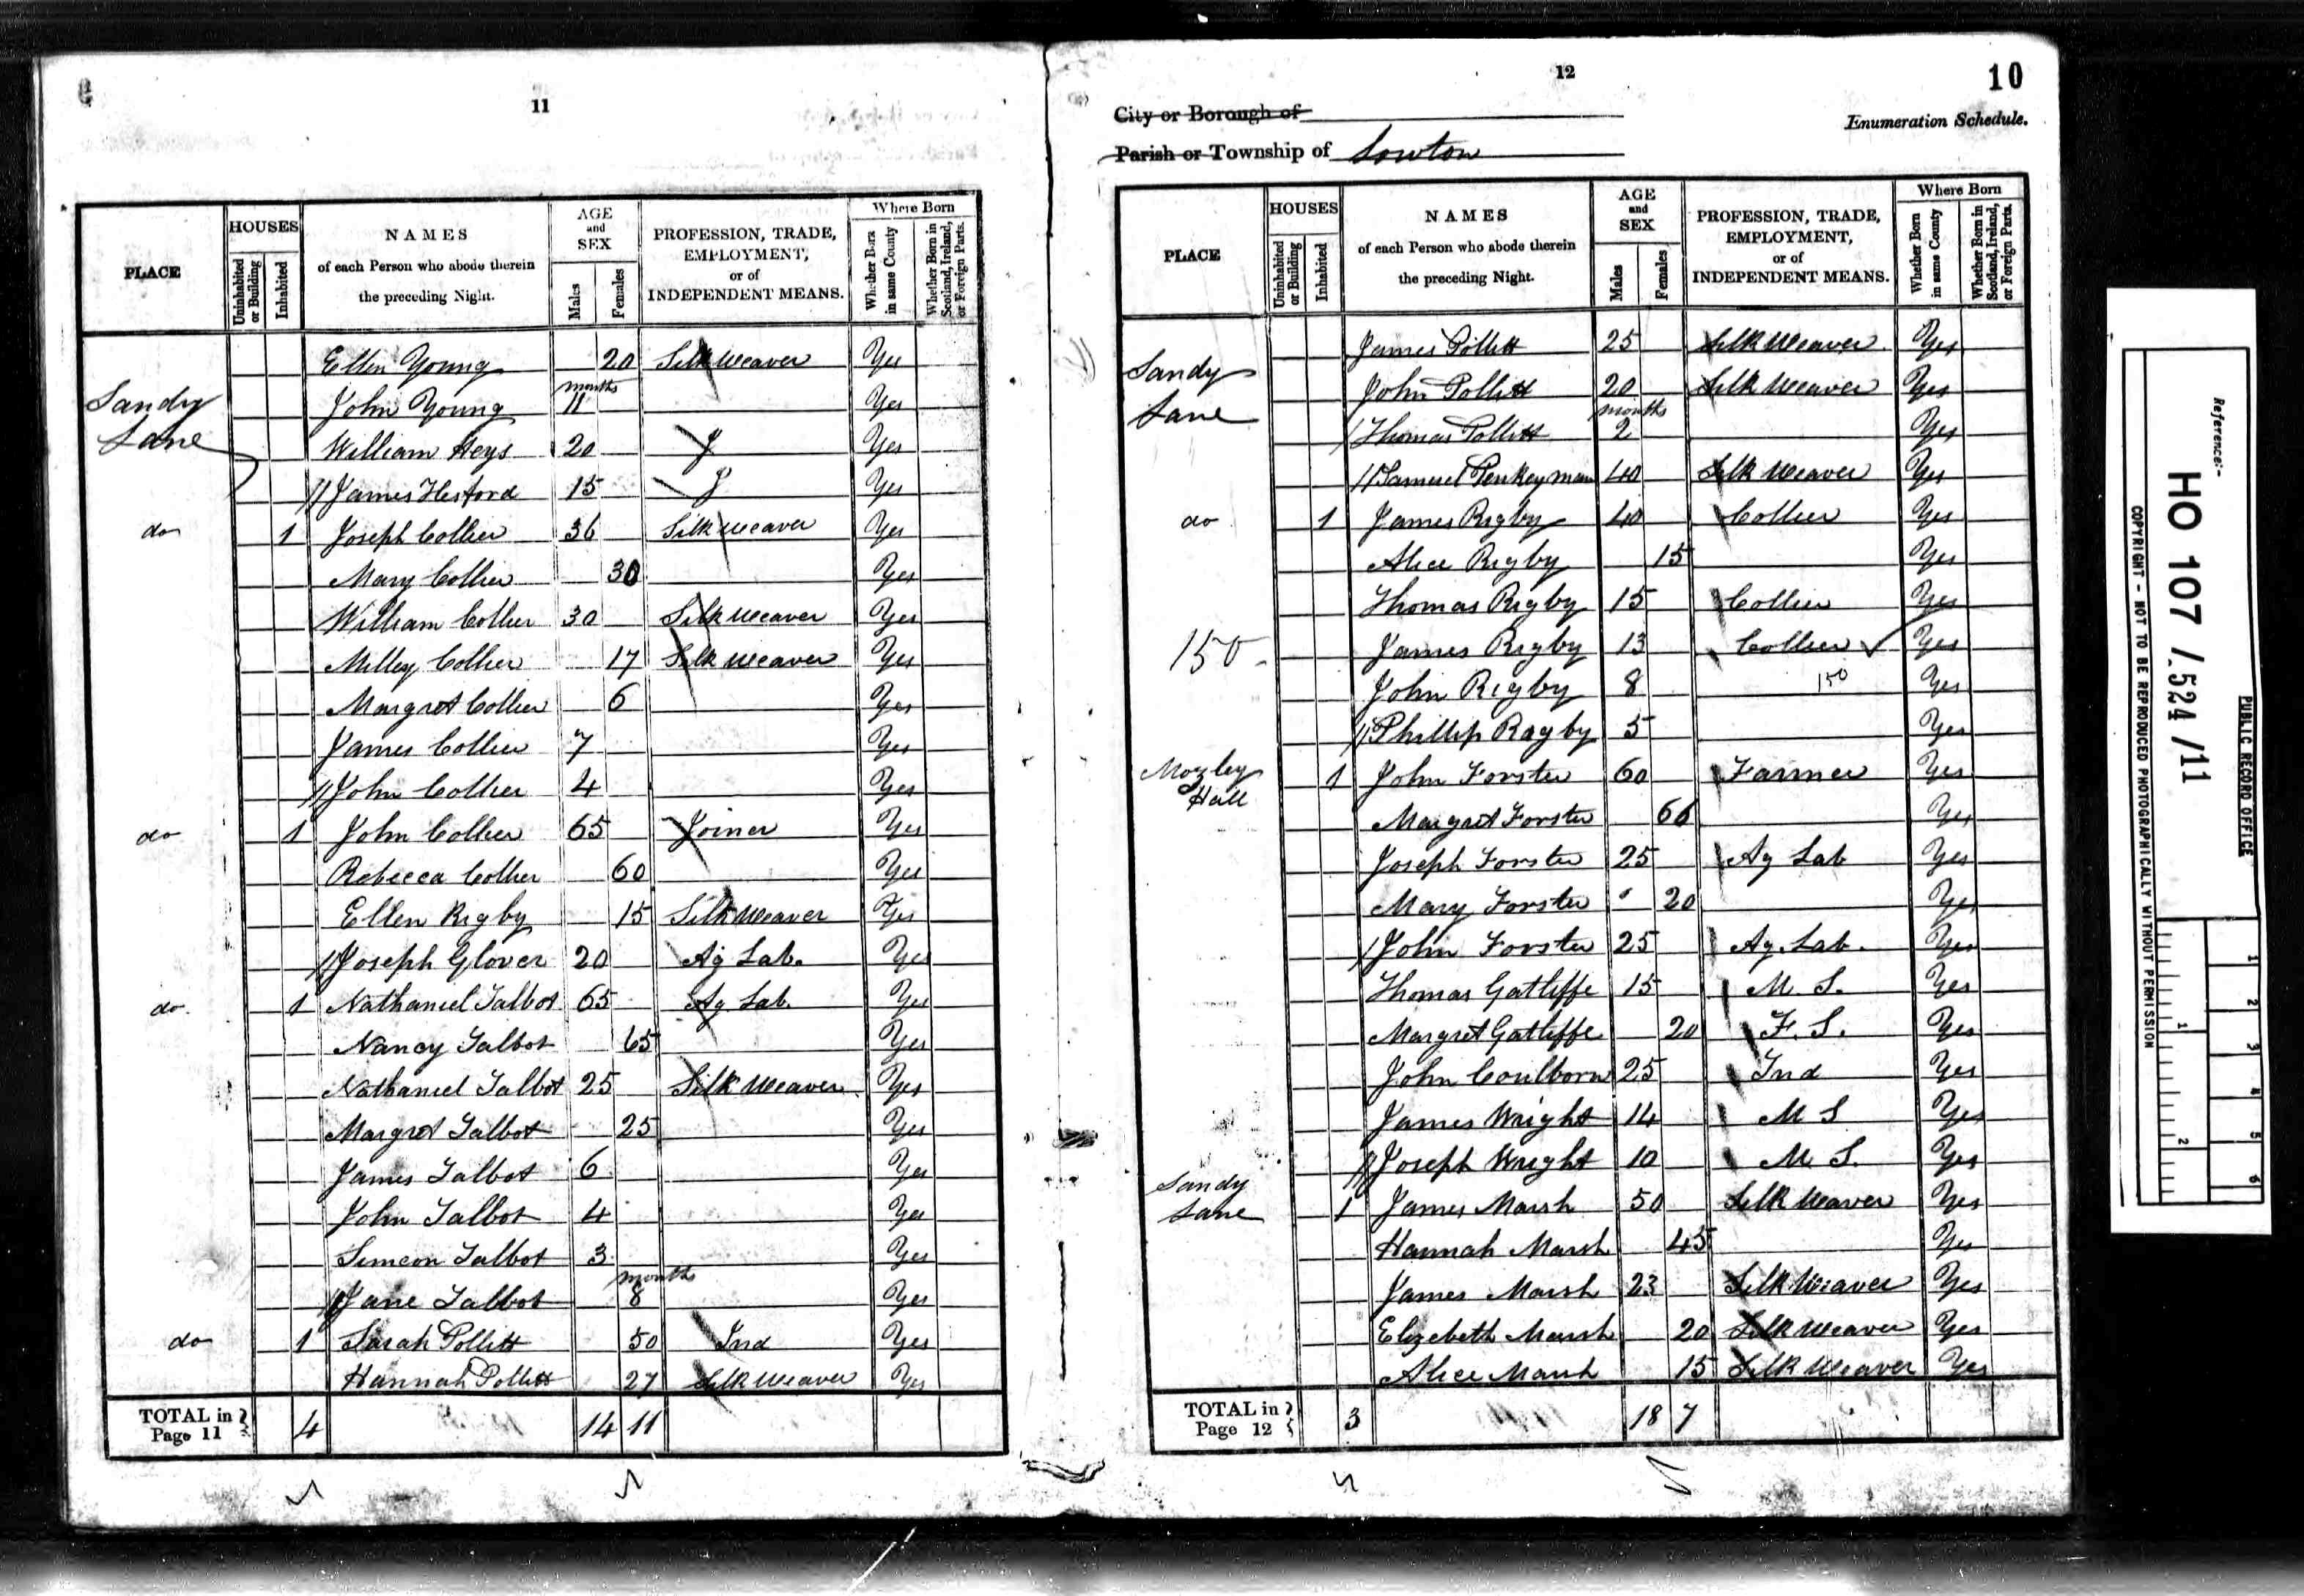 11
PLACE
HOUSES
Uninhabited or Building
Inhabited
NAMES
of each Person who abode therein
the preceding Night.
AGE
and
SEX
Males
Females
PROFESSION, TRADE,
EMPLOYMENT,
or of
INDEPENDENT MEANS.
Where Born
Whether Born in same County
Whether Born in Scotland, Ireland, or Foreign Parts.
Ellen Young 20 Silk Weaver Yes
Sandy Lane
John Young months 11 Yes
William Heys 20 J Yes
James Hesford 15 J Yes
do 1 Joseph Collier 36 Silk Weaver Yes
Mary Collier 30 Yes
William Collier 30 Silk Weaver Yes
Milley Collier 17 Silk Weaver Yes
Margret Collier 6 Yes
James Collier 7 Yes
John Collier 4 Yes
do 1 John Collier 65 Joiner Yes
Rebecca Collier 60 Yes
Ellen Rigby 15 Silk Weaver Yes
Joseph Glover 20 Ag Lab. Yes
do 1 Nathaniel Talbot 65 Ag Lab. Yes
Nancy Talbot 65 Yes
Nathaniel Talbot 25 Silk Weaver Yes
Margret Talbot 25 Yes
James Talbot 6 Yes
John Talbot 4 Yes
Simeon Talbot 3 Yes
Jane Talbot months 8 Yes
do 1 Sarah Pollitt 50 Ind Yes
Hannah Pollitt 27 Silk Weaver Yes
TOTAL in Page 11 4 14 11
12
10
City or Borough of
Enumeration Schedule.
Parish or Township of Lowton
PLACE
HOUSES
Uninhabited or Building
Inhabited
NAMES
of each Person who abode therein
the preceding Night.
AGE
and
SEX
Males
Females
PROFESSION, TRADE,
EMPLOYMENT,
or of
INDEPENDENT MEANS.
Where Born
Whether Born in same County
Whether Born in Scotland, Ireland, or Foreign Parts.
James Pollitt 25 Silk Weaver Yes
Sandy Lane
John Pollitt 20 Silk Weaver Yes
Thomas Pollitt months 2 Yes
Samuel Penkeyman 40 Silk Weaver Yes
do 1 James Rigby 40 Collier Yes
Alice Rigby 15 Yes
Thomas Rigby 15 Collier Yes
150 James Rigby 13 Collier Yes
John Rigby 8 150 Yes
Phillip Rigby 5 Yes
Mozley Hall 1 John Forster 60 Farmer Yes
Margret Forster 66 Yes
Joseph Forster 25 Ag Lab Yes
Mary Forster 20 Yes
John Forster 25 Ag. Lab. Yes
Thomas Gatliffe 15 M. S. Yes
Margret Gatliffe 20 F. S. Yes
John Coulborn 25 Ind Yes
James Wright 14 M S Yes
Joseph Wright 10 M. S. Yes
Sandy Lane 1 James Marsh 50 Silk Weaver Yes
Hannah Marsh 45 Yes
James Marsh 23 Silk Weaver Yes
Elizebeth Marsh 20 Silk Weaver Yes
Alice Marsh 15 Silk Weaver Yes
TOTAL in Page 12 3 18 7
Reference:-
HO 107/524/11
PUBLIC RECORD OFFICE
COPYRIGHT - NOT TO BE REPRODUCED PHOTOGRAPHICALLY WITHOUT PERMISSION
1 2 3 4 5 6
1 2